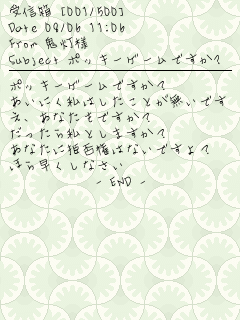 受信箱 [001/500]
Date 09/06 11:06
From 鬼灯様
Subject ポッキーゲームですか?
ポッキーゲームですか?
あいにく私はしたことが無いです
え、あなたもですか?
だったら私としますか?
あなたに拒否権はないですよて
ほら早くしなさい
- END -